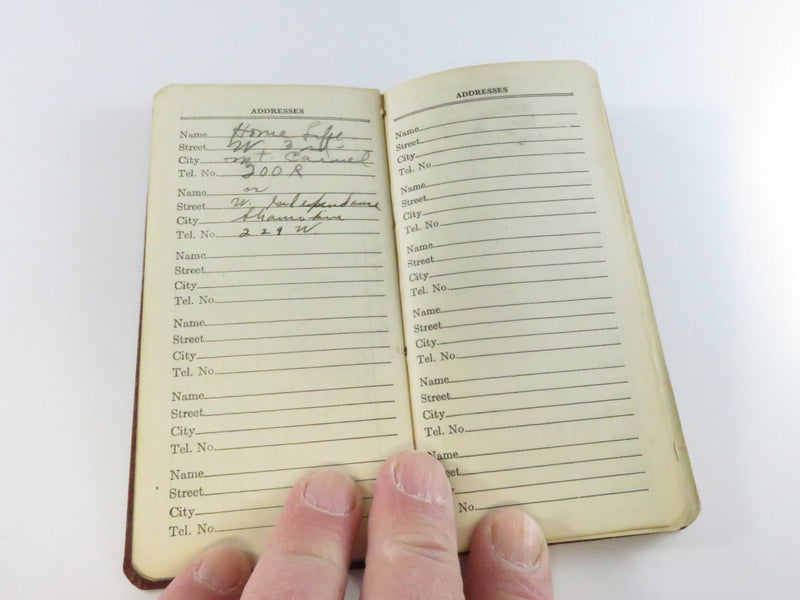 ADDRESSES
Name Home Life
Street W 3rd
City Mt. Carmel
Tel. No. 200R
Name or
Street W. Independence
City Shamokin
Tel. No. 229 W.
Name
Street
City
Tel. No.
Name
Street
City
Tel. No.
Name
Street
City
Tel. No.
Name
Street
City
Tel. No.
ADDRESSES
Name
Street
City
Tel. No.
Name
Street
City
Tel. No.
Name
Street
City
Tel. No.
Name
Street
City
Tel. No.
Name
Street
City
Tel. No.
Name
eet
No.